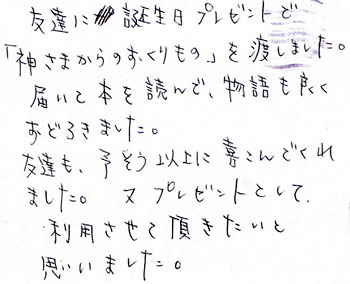 友達に誕生日プレゼントで
「神さまからのおくりもの」を渡しました。
届いて本を読んで、物語も良く
おどろきました。
友達も、予そう以上に喜こんでくれ
ました。又プレゼントとして、
利用させて頂きたいと
思いいました。